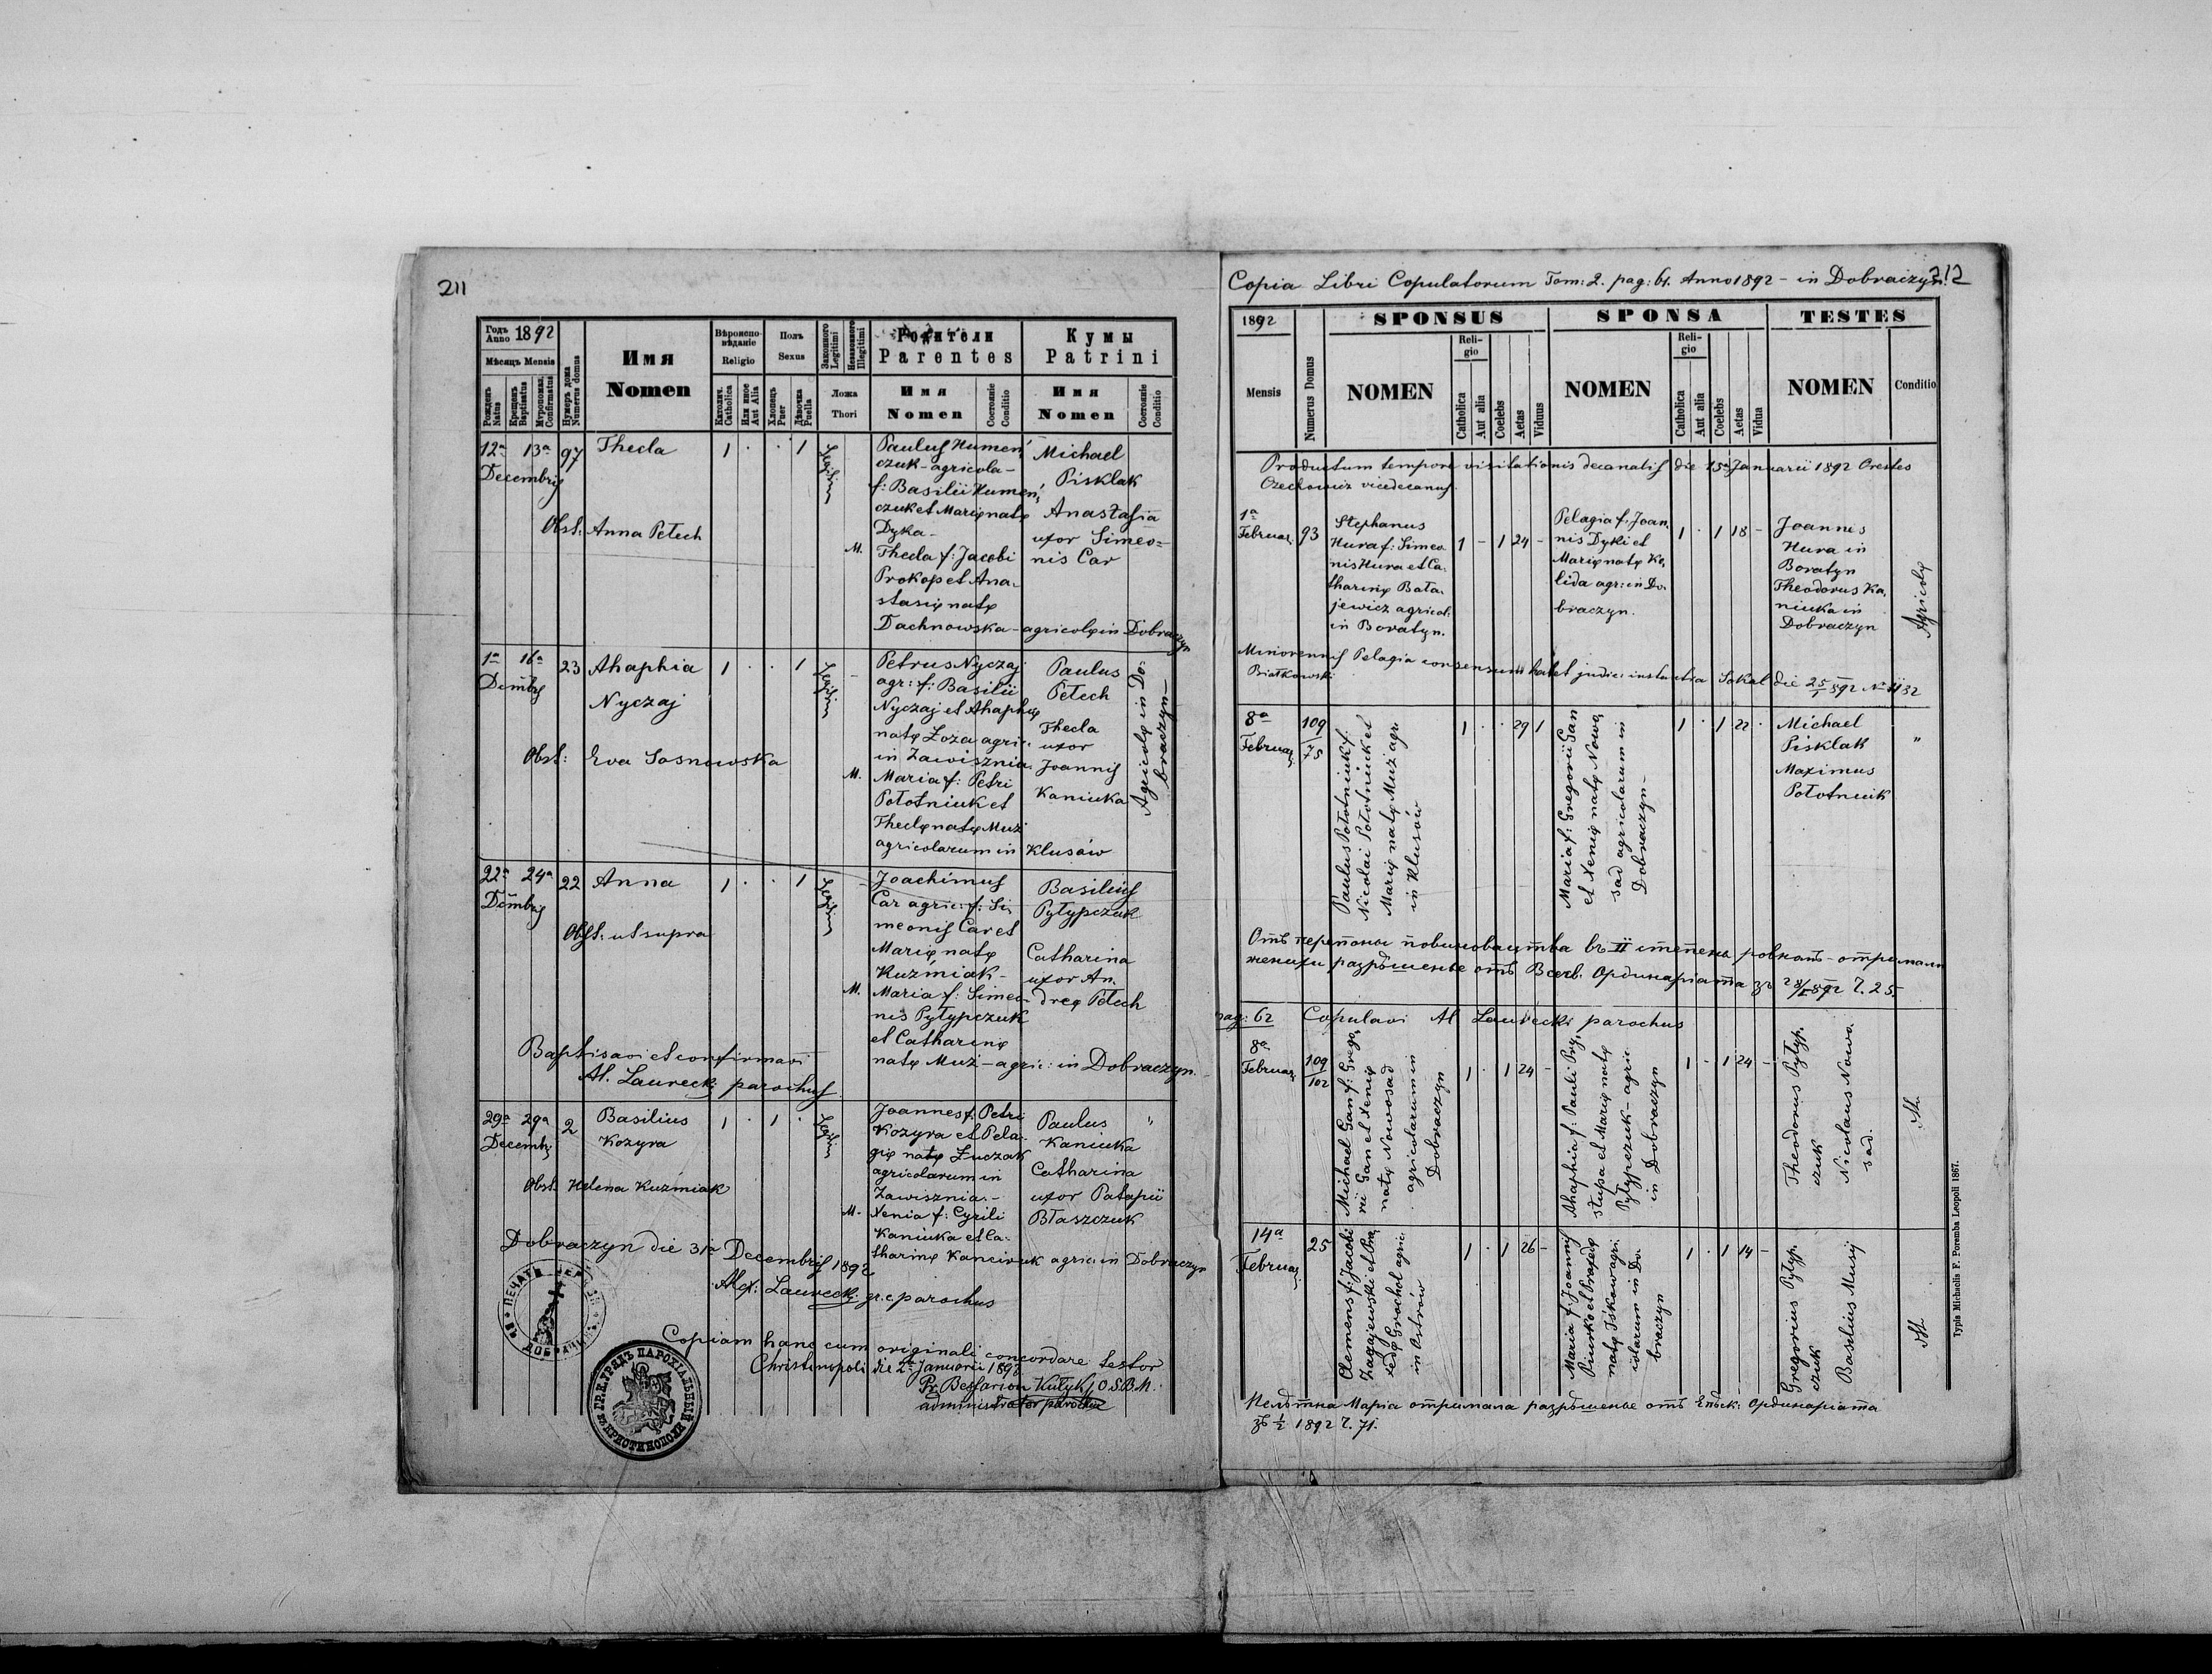 211
Годъ Anno 1892
Мѣсяцъ Mensis
Рожденъ Natus
Крещенъ Baptisatus
Мѵропомаз. Confirmatus
Нумеръ дома Numerus domus
Имя
Nomen
Вѣроиспо-
вѣданіе
Religio
Католич. Catholica
Или иное Aut Alia
Полъ
Sexus
Хлопецъ Puer
Дѣвочка Puella
Законного Legitimi
Незаконного Illegitimi
Ложа
Thori
Родители
Parentes
Имя
Nomen
Состояніе Conditio
Кумы
Patrini
Имя
Nomen
Состояніе Conditio
12a 13a 97 Thecla 1 · · 1
Decembris
Obst. Anna Petech
Paulus Humen
czuk - agricola -
f: Basilii Humen
czuk et Marię natę
Dyka -
M. Thecla f: Jacobi
Prokop et Ana-
stasię natę
Dachnowska - agricolę in Dobraczyn
Michael
Pisklak
Anastasia
uxor Simeo=
nis Car
1a 16a 23 Ahaphia 1 · · 1
Decmbris
Nyczaj
Obst: Eva Sosnowska
Petrus Nyczaj
agr: f: Basilii
Nyczaj et Ahaphię
natę Łoza agric.
in Zawisznia.
M. Maria f: Petri
Połotniuk et
Theclę natę Muż
agricolarum in Klusów
Paulus
Petech
Thecla
uxor
Joannis
Kaniuka
Agricolę in Do:
braczyn -
22a 24a 22 Anna 1 · · 1
Decmbris
Obst: ut supra
Joachimus
Car agric: f: Si
meonis Car et
Marię natę
Kuźmiak -
M. Maria f: Simeo-
nis Pyłypczuk
et Catharinę
natę Muż - agric: in Dobraczyn.
Basilius
Pyłypczuk
Catharina
uxor An.
dreę Petech
Baptisavi et confirmavi
Al. Laurecki parochus
29a 29a 2 Basilius 1 · 1 ·
Decembr
Kozyra
Obst. Helena Kuzmiak
Joannes f. Petri
Kozyra et Pela-
gię natę Łuczak
agricolarum in
Zawisznia. -
M. Xenia f: Cyrili
Kaniuka et Ca-
tharinę agric: in Dobraczyn
Paulus "
Kaniuka
Catharina
uxor Patapii
Błaszczuk
Dobraczyn die 31a Decembris 1892
Alex: Laurecki gr. c. parochus
Copiam hanc cum originali concordare testor
Christinopoli die 2a Januarii 1893
Pr. Bessarion Kułyk, O.S.B.M.
administrator parochiae
Copia Libri Copulatorum Tom: 2. pag: 61. Anno 1892 - in Dobraczyn. 212
1892
Mensis
Numerus Domus
SPONSUS
NOMEN
Reli-
gio
Catholica
Aut alia
Coelebs
Aetas
Viduus
SPONSA
NOMEN
Reli-
gio
Catholica
Aut alia
Coelebs
Aetas
Vidua
TESTES
NOMEN
Conditio
Productum tempore visitationis decanalis die 15a Januarii 1892 Orestes
Czechowicz vicedecanus.
1a
Februar. 93
Stephanus
Hura f: Simeo
nis Hura et Ca-
tharinę Bata-
jewicz agricol:
in Boratyn.
1 - 1 24 -
Pelagia f: Joan.
nis Dyki et
Marię natę Ko,
lida agr: in Do.
braczyn.
1 · 1 18 -
Joannes
Hura in
Boratyn
Theodorus Ka,
niuka in
Dobraczyn
Agricolę
Minorennis Pelagia consensum habet judic: instantia Sokal die 25/1 892 No 1132
Białkowski
8a
Februar. 109/75
Paulus Połotniuk f.
Nicolai Połotniuk et
Marię natę Muż agr.
in Klusów
1 · · 29 1
Maria f: Gregorii Gan
et Xenię natę Nowo,
sad agricolarum in
Dobraczyn -
1 · 1 22 ·
Michael
Pisklak
Maximus
Połotniuk
"
женихи разрѣшенье отъ Всесв. Ординаріата зъ 28/I 892 Ч. 25.
pag: 62 Copulavi Al Laurecki parochus
8a
Februar. 109/102
Michael Gan f: Grego,
rii Gan et Xenię
natę Nowosad
agricolarum in
Dobraczyn
1 · 1 24 -
Ahaphia f: Pauli Pry,
stupa et Marię natę
Pyłypczuk - agric
in Dobraczyn
1 - 1 24 -
Theodorus Pyłyp,
czuk
Nicolaus Nowo.
sad.
14a
Februar. 25
Clemens f: Jacobi
Zagajewski et Pra
xedę Grochol agric.
in Ostrów
1 · 1 26 -
Maria f: Joannis
Piurko et Praxedę
natę Iśków agri.
colarum in Do.
braczyn
1 · 1 14 -
Gregorius Pyłyp.
czuk
Basilius Musij
Нелѣтна Марія отримала разрѣшенье отъ Епѣск: Ординаріата
зъ 1/2 1892 Ч. 71.
Typis Michaelis F. Poremba Leopoli 1867.